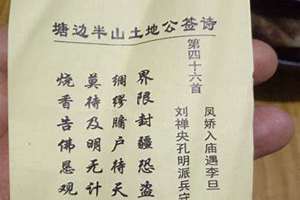 塘边半山土地公签诗
第四十六首
凤娇入庙遇李旦
刘禅央孔明派兵守
界限封疆恐盗
绸缪牖户待天
莫待及明无计
烧香告佛恳观